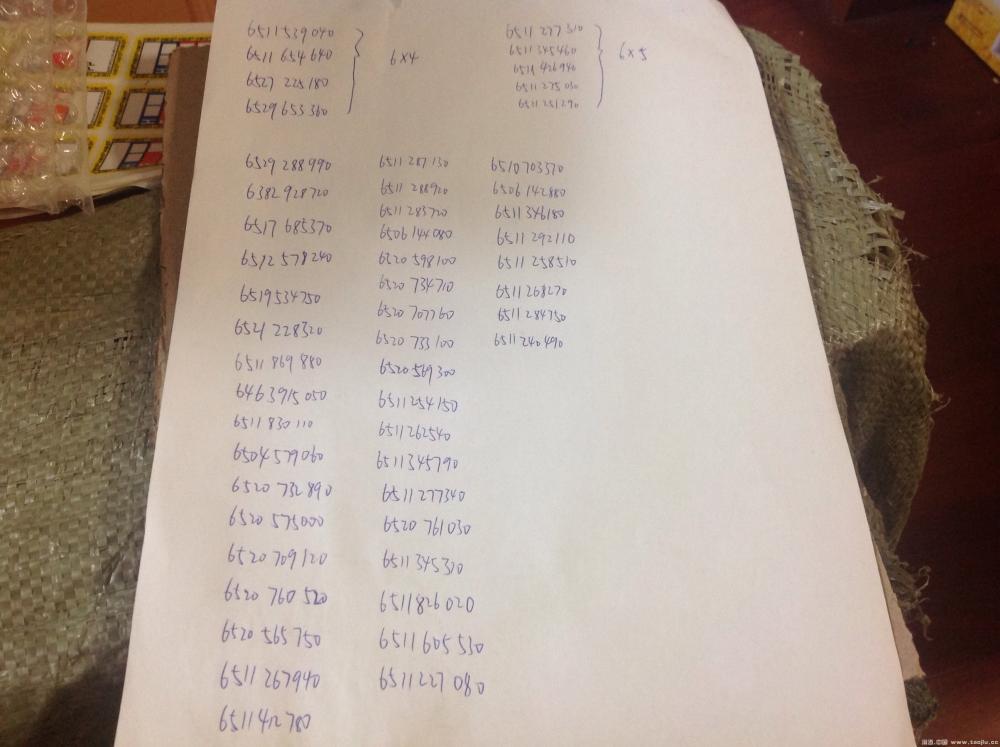 6511539040
6511 654 640
6527 225180
6529 653360
6×4
6511 277310
6511 345460
6511 426940
6511 275030
6511 251290
6×5
6529 288990
6382 928720
6517 685370
6512 578240
6519534750
6521 228320
6511 869880
6463915050
6511 830110
6504579060
6520 732890
6520 575000
6520 709120
6520 760 520
6520 565750
6511 267940
6511412780
6511 287130
6511 288920
6511 283720
6506144080
6520 598100
6520 734710
6520 707760
6520 733100
6520 569300
6511254150
6511262540
6511345790
6511277340
6520 761030
6511345330
6511826020
6511605530
6511227080
6510703370
6506142880
6511346180
6511 292110
6511 258510
6511 268270
6511 284750
6511 240490
淘酒.中国 www.taojiu.cc